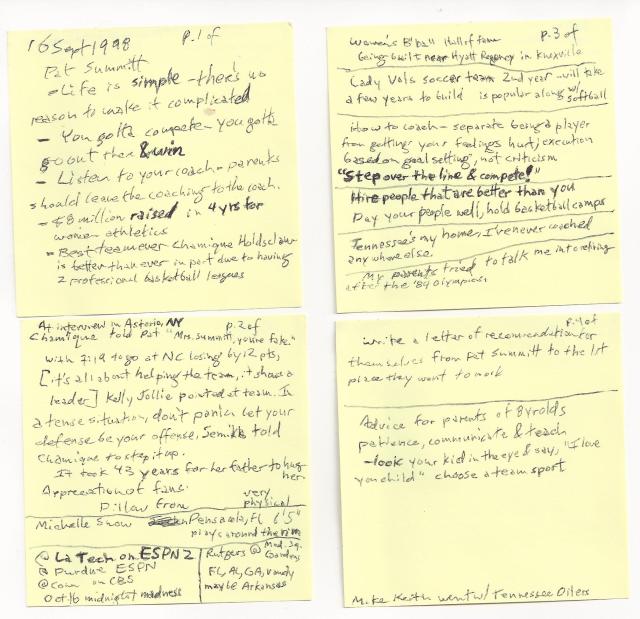 16 Sept 1998 p.1 of
Pat Summitt
- Life is simple - there's no
reason to make it complicated
- You gotta compete - you gotta
go out there & win
- Listen to your coach - parents
should leave the coaching to the coach.
- $8 million raised in 4 yrs for
women athletics
- Best team ever Chamique Holdsclaw
is better than ever in part due to having
2 professional basketball leagues
At interview in Astoria, NY p.2 of
Chamique told Pat "Mrs. Summitt, you're fake."
with 7:19 to go at NC losing by 12 pts,
[it's all about helping the team, it shows a
leader] Kelly Jollie pointed at team. In
a tense situation, don't panic, let your
defense be your offense. Semika told
Chamique to step it up.
It took 43 years for her father to hug
her.
Appreciation of fans.
Dillaw from very
physical
Michelle Snow Pensacola, FL 6'5"
plays around the rim
@ La Tech on ESPN 2
@ Purdue ESPN
@ Conn on CBS
Oct. 16 midnight madness
Rutgers @ Mad. Sq.
Gardens
FL, AL, GA, Vandy
maybe Arkansas
Women's B'ball Hall of Fame p.3 of
being built near Hyatt Regency in Knoxville
Lady Vols soccer team 2nd year - will take
a few years to build is popular along w/
softball
How to coach - separate being a player
from getting your feelings hurt, execution
based on goal setting, not criticism
"Step over the line & compete!"
Hire people that are better than you
Pay your people well, hold basketball camps
Tennessee's my home, I've never coached
any where else.
My parents tried to talk me into retiring
after the '84 Olympics.
p.4 of
write a letter of recommendation for
themselves from Pat Summitt to the 1st
place they want to work
Advice for parents of 8 yr olds
patience, communicate & teach
- look your kid in the eye & say, "I love
you child" choose a team sport
Mike Keith went w/ Tennessee Oilers